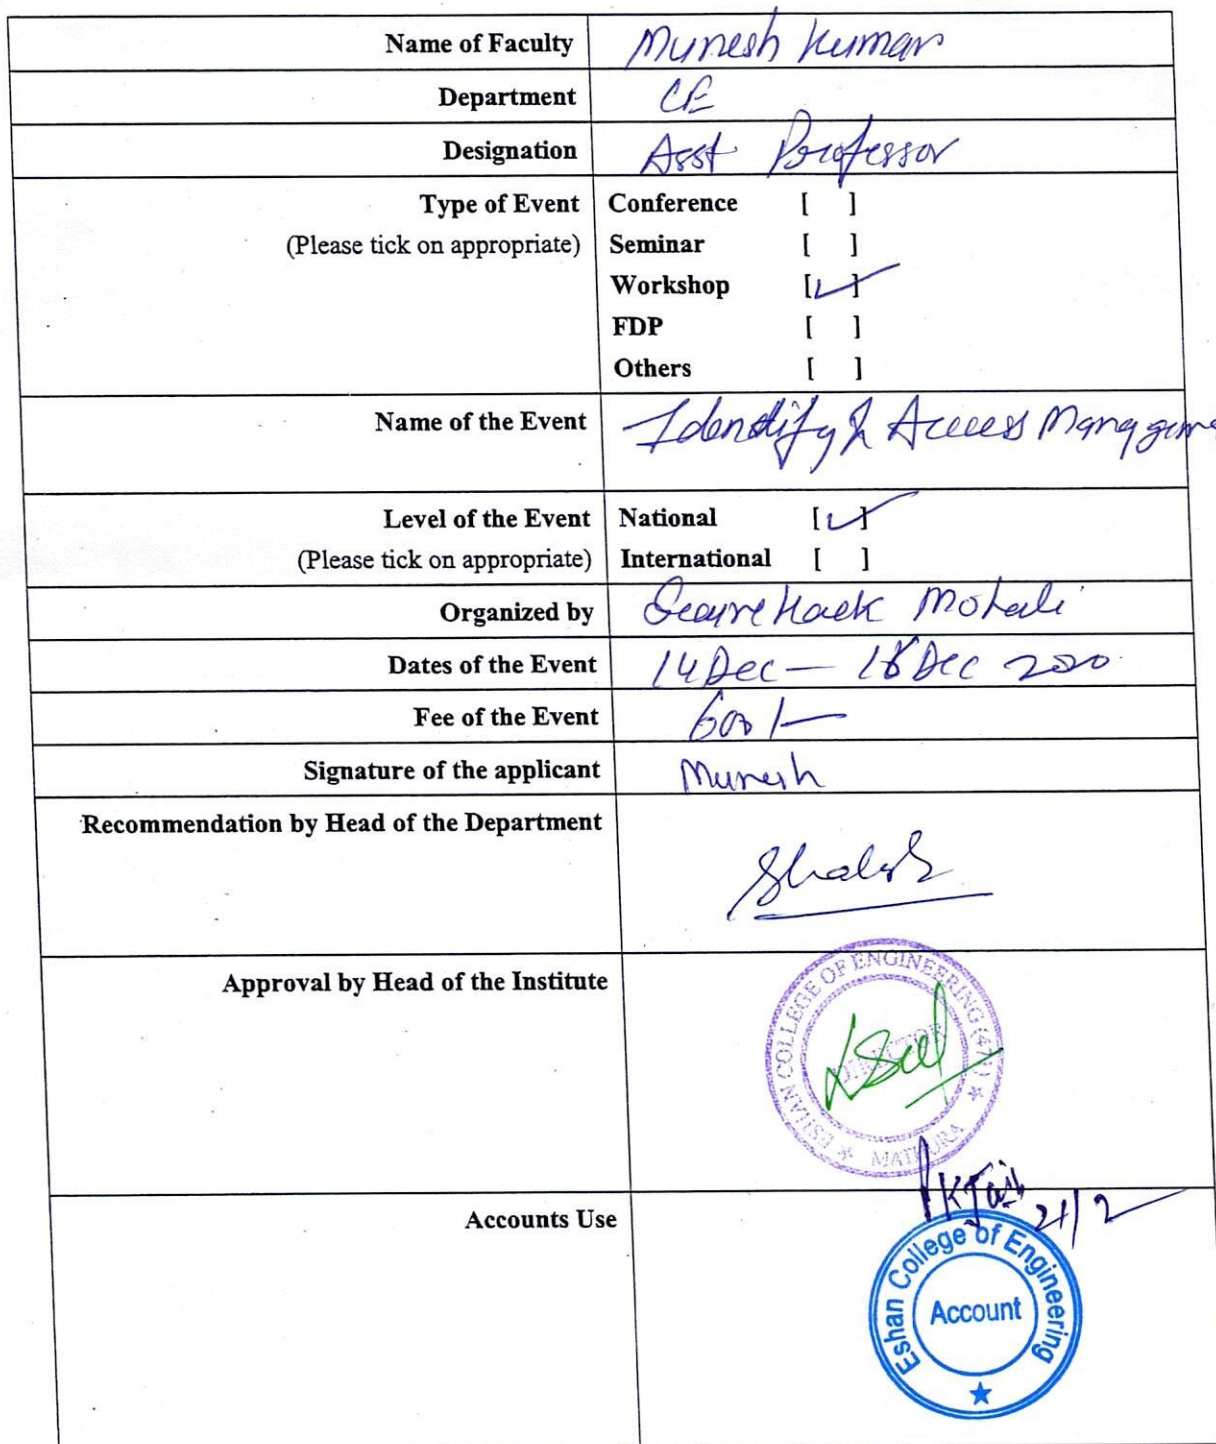 Name of Faculty Munesh Kumar
Department CE
Designation Asst Professor
Type of Event Conference [ ]
(Please tick on appropriate) Seminar [ ]
Workshop [✓]
FDP [ ]
Others [ ]
Name of the Event Identify & Access Manageme
Level of the Event National [✓]
(Please tick on appropriate) International [ ]
Organized by SecureHack Mohali
Dates of the Event 14 Dec — 18 Dec 2020
Fee of the Event 600/-
Signature of the applicant Munesh
Recommendation by Head of the Department
Approval by Head of the Institute
ESHAN COLLEGE OF ENGINEERING (471)
DIRECTOR
MATHURA
Accounts Use
PKJain
21/2
Eshan College of Engineering
Account